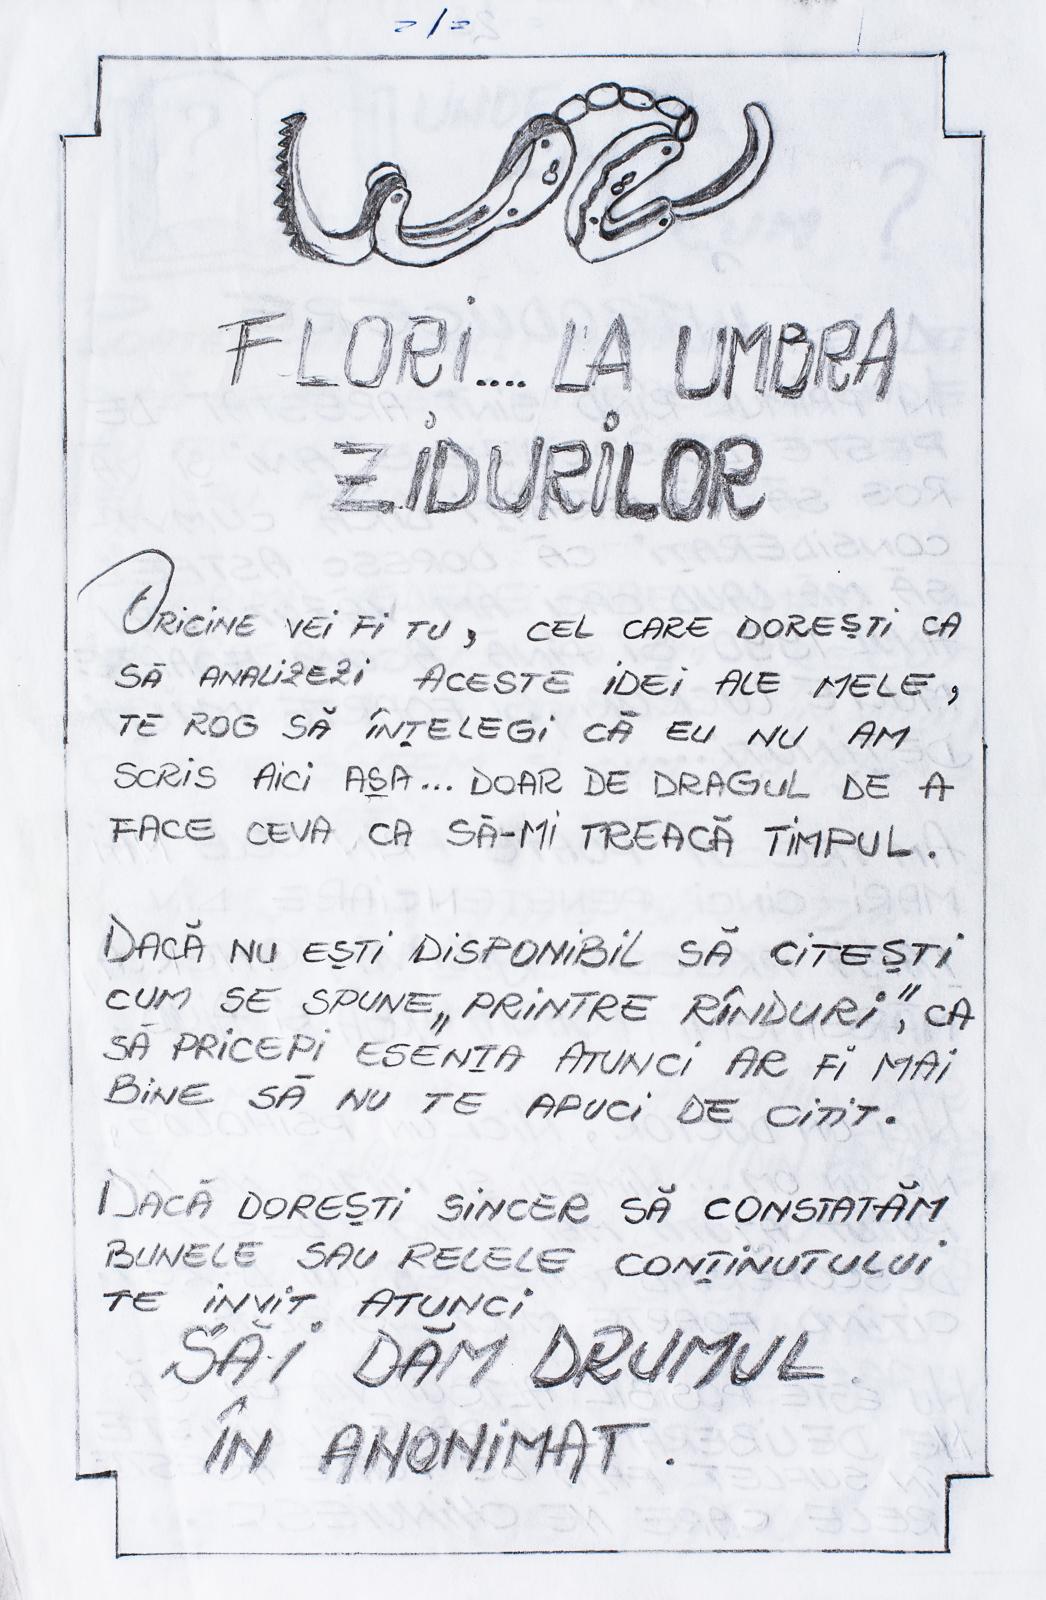 FLORI.... LA UMBRA
ZIDURILOR
ORICINE VEI FI TU, CEL CARE DOREȘTI CA
SĂ ANALIZEZI ACESTE IDEI ALE MELE,
TE ROG SĂ ÎNȚELEGI CĂ EU NU AM
SCRIS AICI AȘA... DOAR DE DRAGUL DE A
FACE CEVA CA SĂ-MI TREACĂ TIMPUL.
DACĂ NU EȘTI DISPONIBIL SĂ CITEȘTI
CUM SE SPUNE „PRINTRE RÎNDURI", CA
SĂ PRICEPI ESENȚA ATUNCI AR FI MAI
BINE SĂ NU TE APUCI DE CITIT.
DACĂ DOREȘTI SINCER SĂ CONSTATĂM
BUNELE SAU RELELE CONȚINUTULUI
TE INVIT ATUNCI
SĂ-I DĂM DRUMUL
ÎN ANONIMAT.